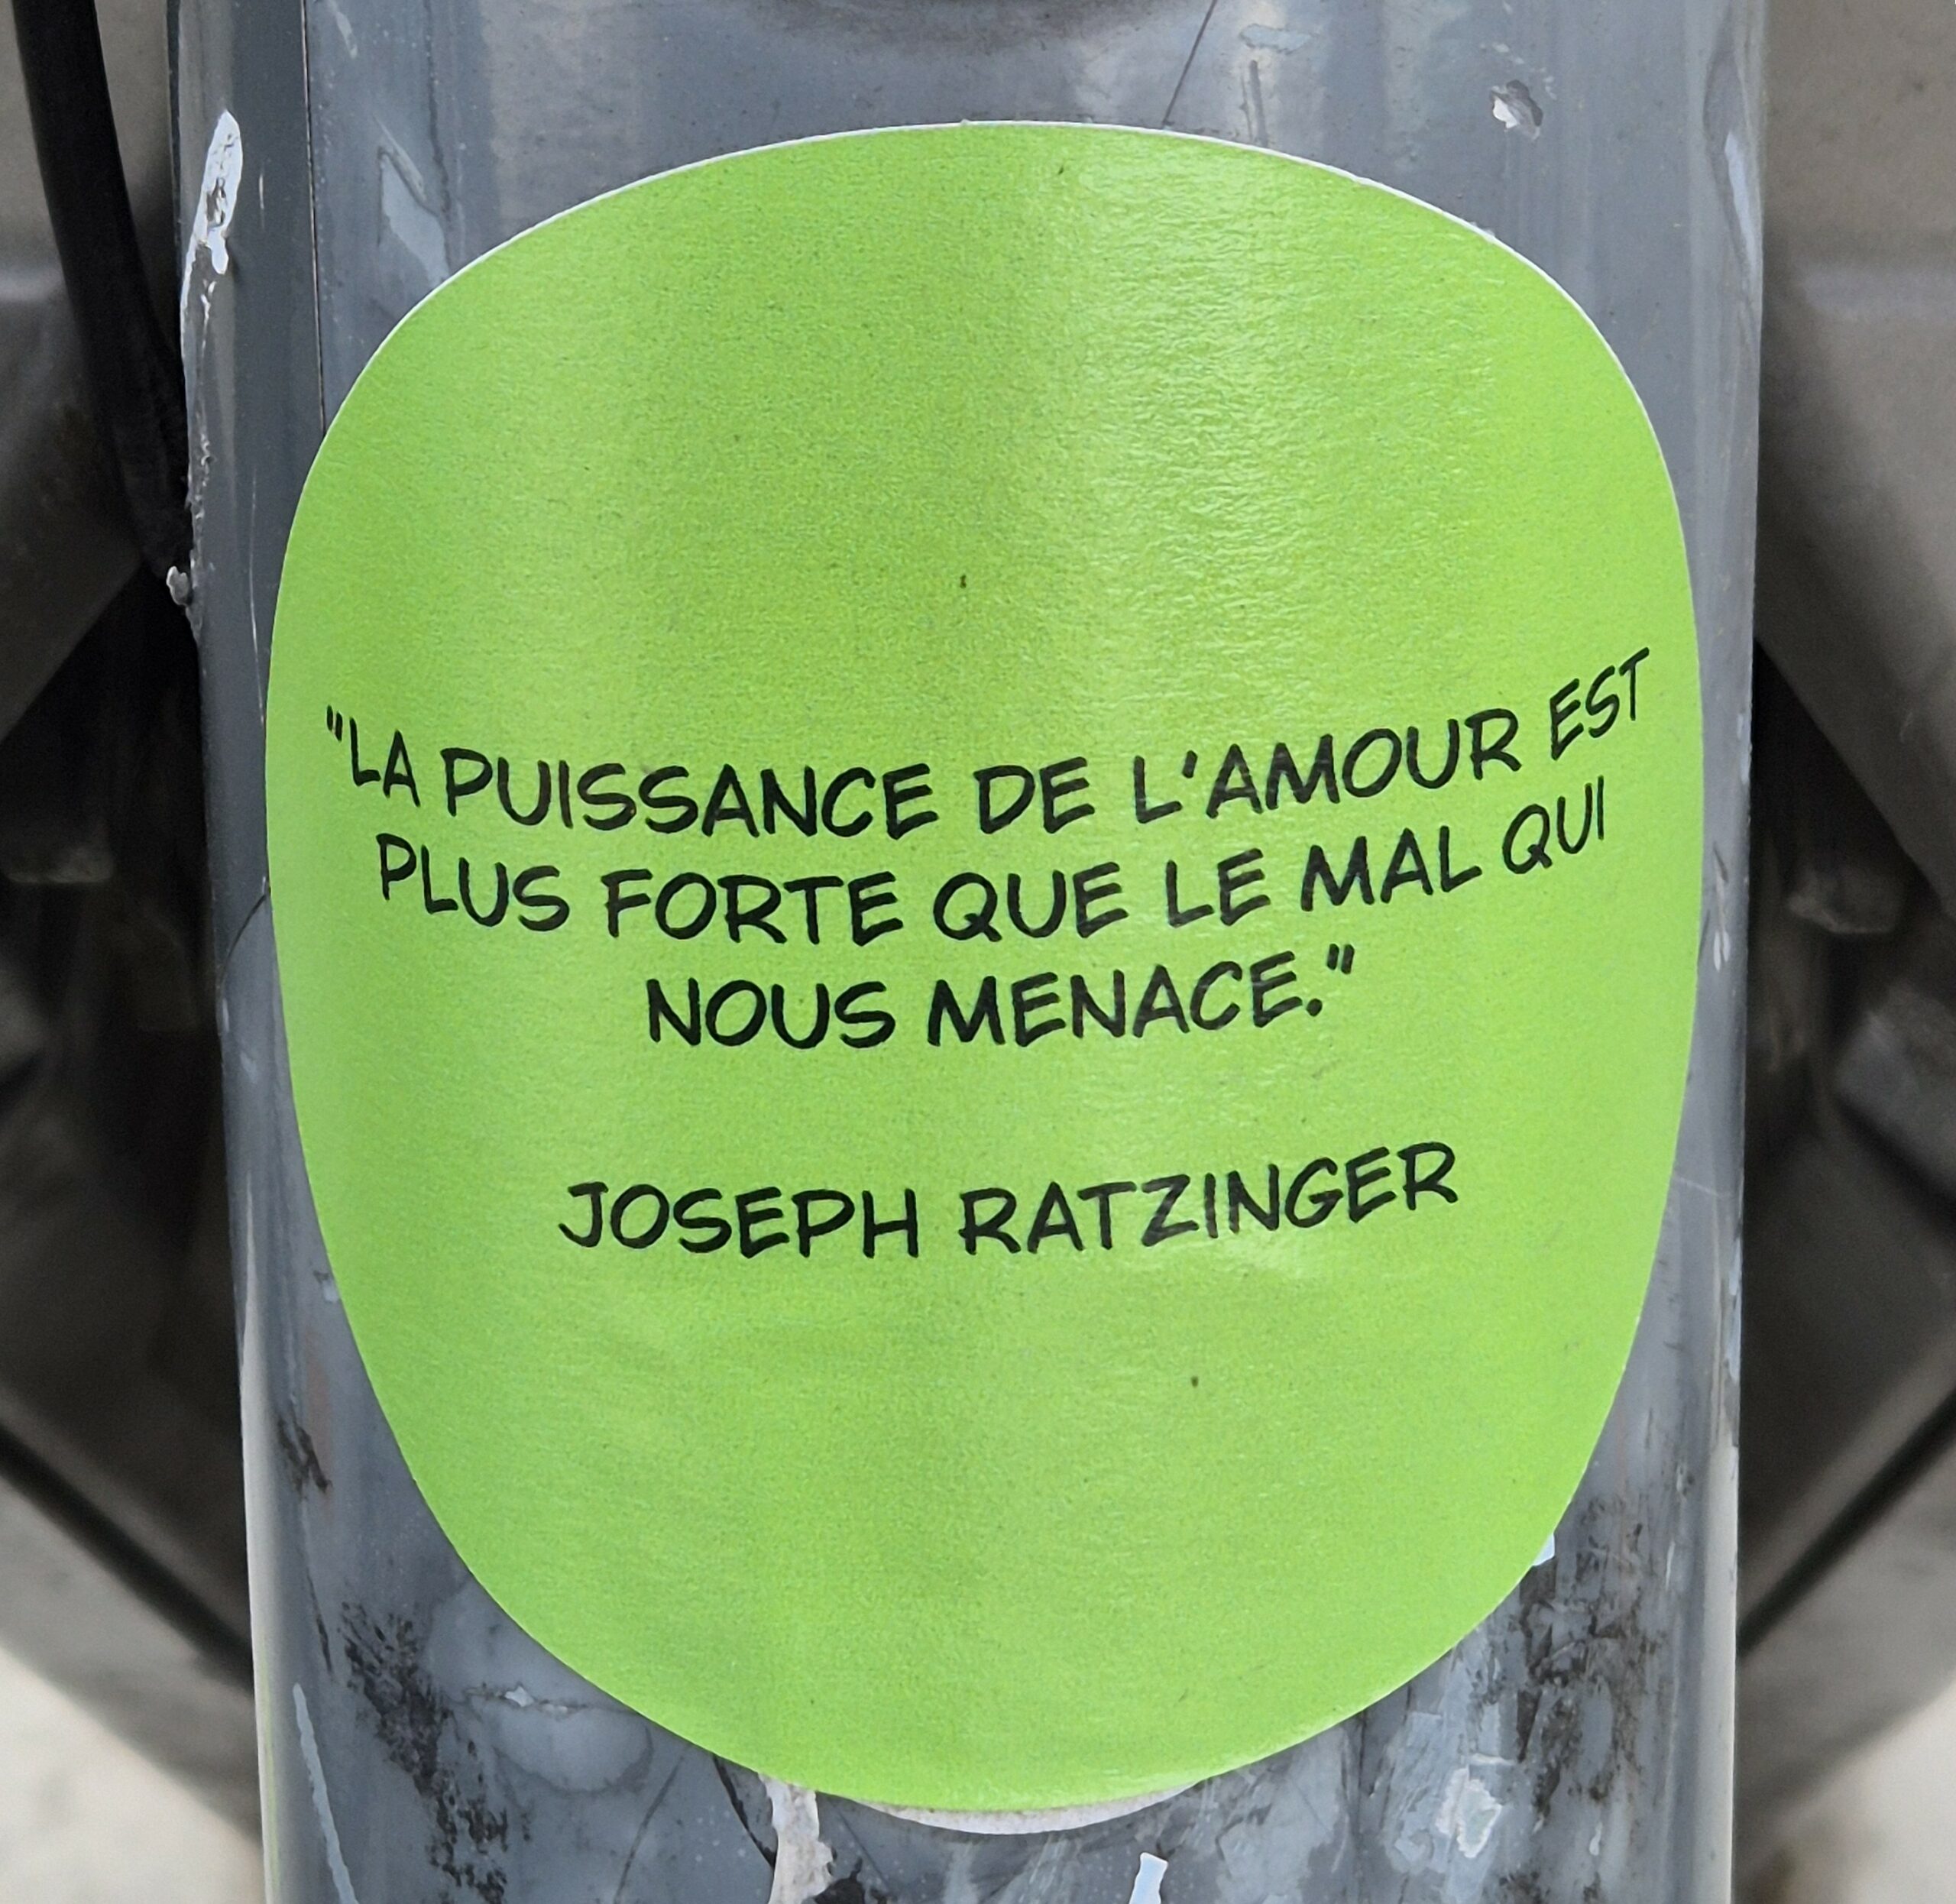 "LA PUISSANCE DE L'AMOUR EST
PLUS FORTE QUE LE MAL QUI
NOUS MENACE."
JOSEPH RATZINGER